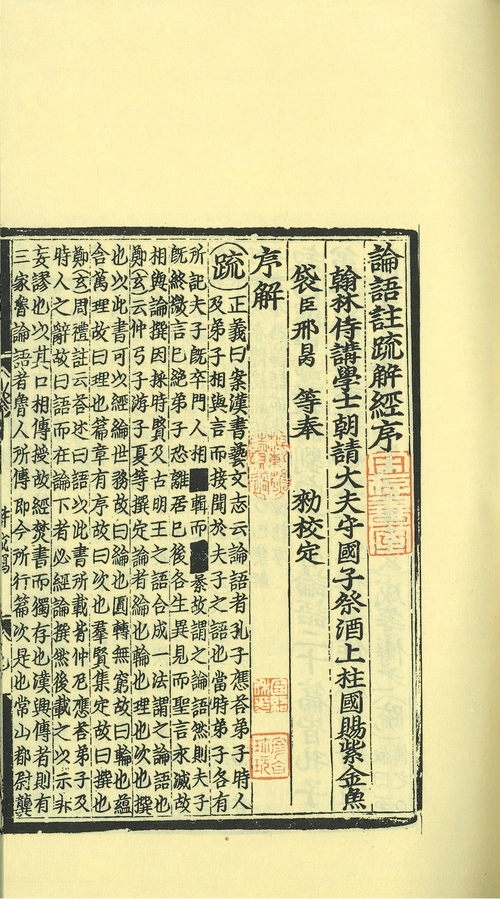 論語註疏解經序
翰林侍講學士朝請大夫守國子祭酒上柱國賜紫金魚
袋臣邢昺 等奉 勑校定
序解
疏 正義曰案漢書藝文志云論語者孔子應荅弟子時人
及弟子相與言而接聞於夫子之語也當時弟子各有
所記夫子旣卒門人相 輯而 纂故謂之論語然則夫子
旣終微言已絶弟子恐離居已後各生異見而聖言永滅故
相與論撰因採時賢及古明王之語合成一法謂之論語也
鄭玄云仲弓子游子夏等撰定論者綸也輪也理也次也撰
也以此書可以經綸世務故曰綸也圓轉無窮故曰輪也藴
含萬理故曰理也篇章有序故曰次也羣賢集定故曰撰也
鄭玄周禮註云荅述曰語以此書所載皆仲尼應荅弟子及
時人之辭故曰語而在論下者必經論撰然後載之以示非
妄謬也以其口相傳授故經焚書而獨存也漢興傳者則有
三家魯論語者魯人所傳即今所行篇次是也常山都尉龔